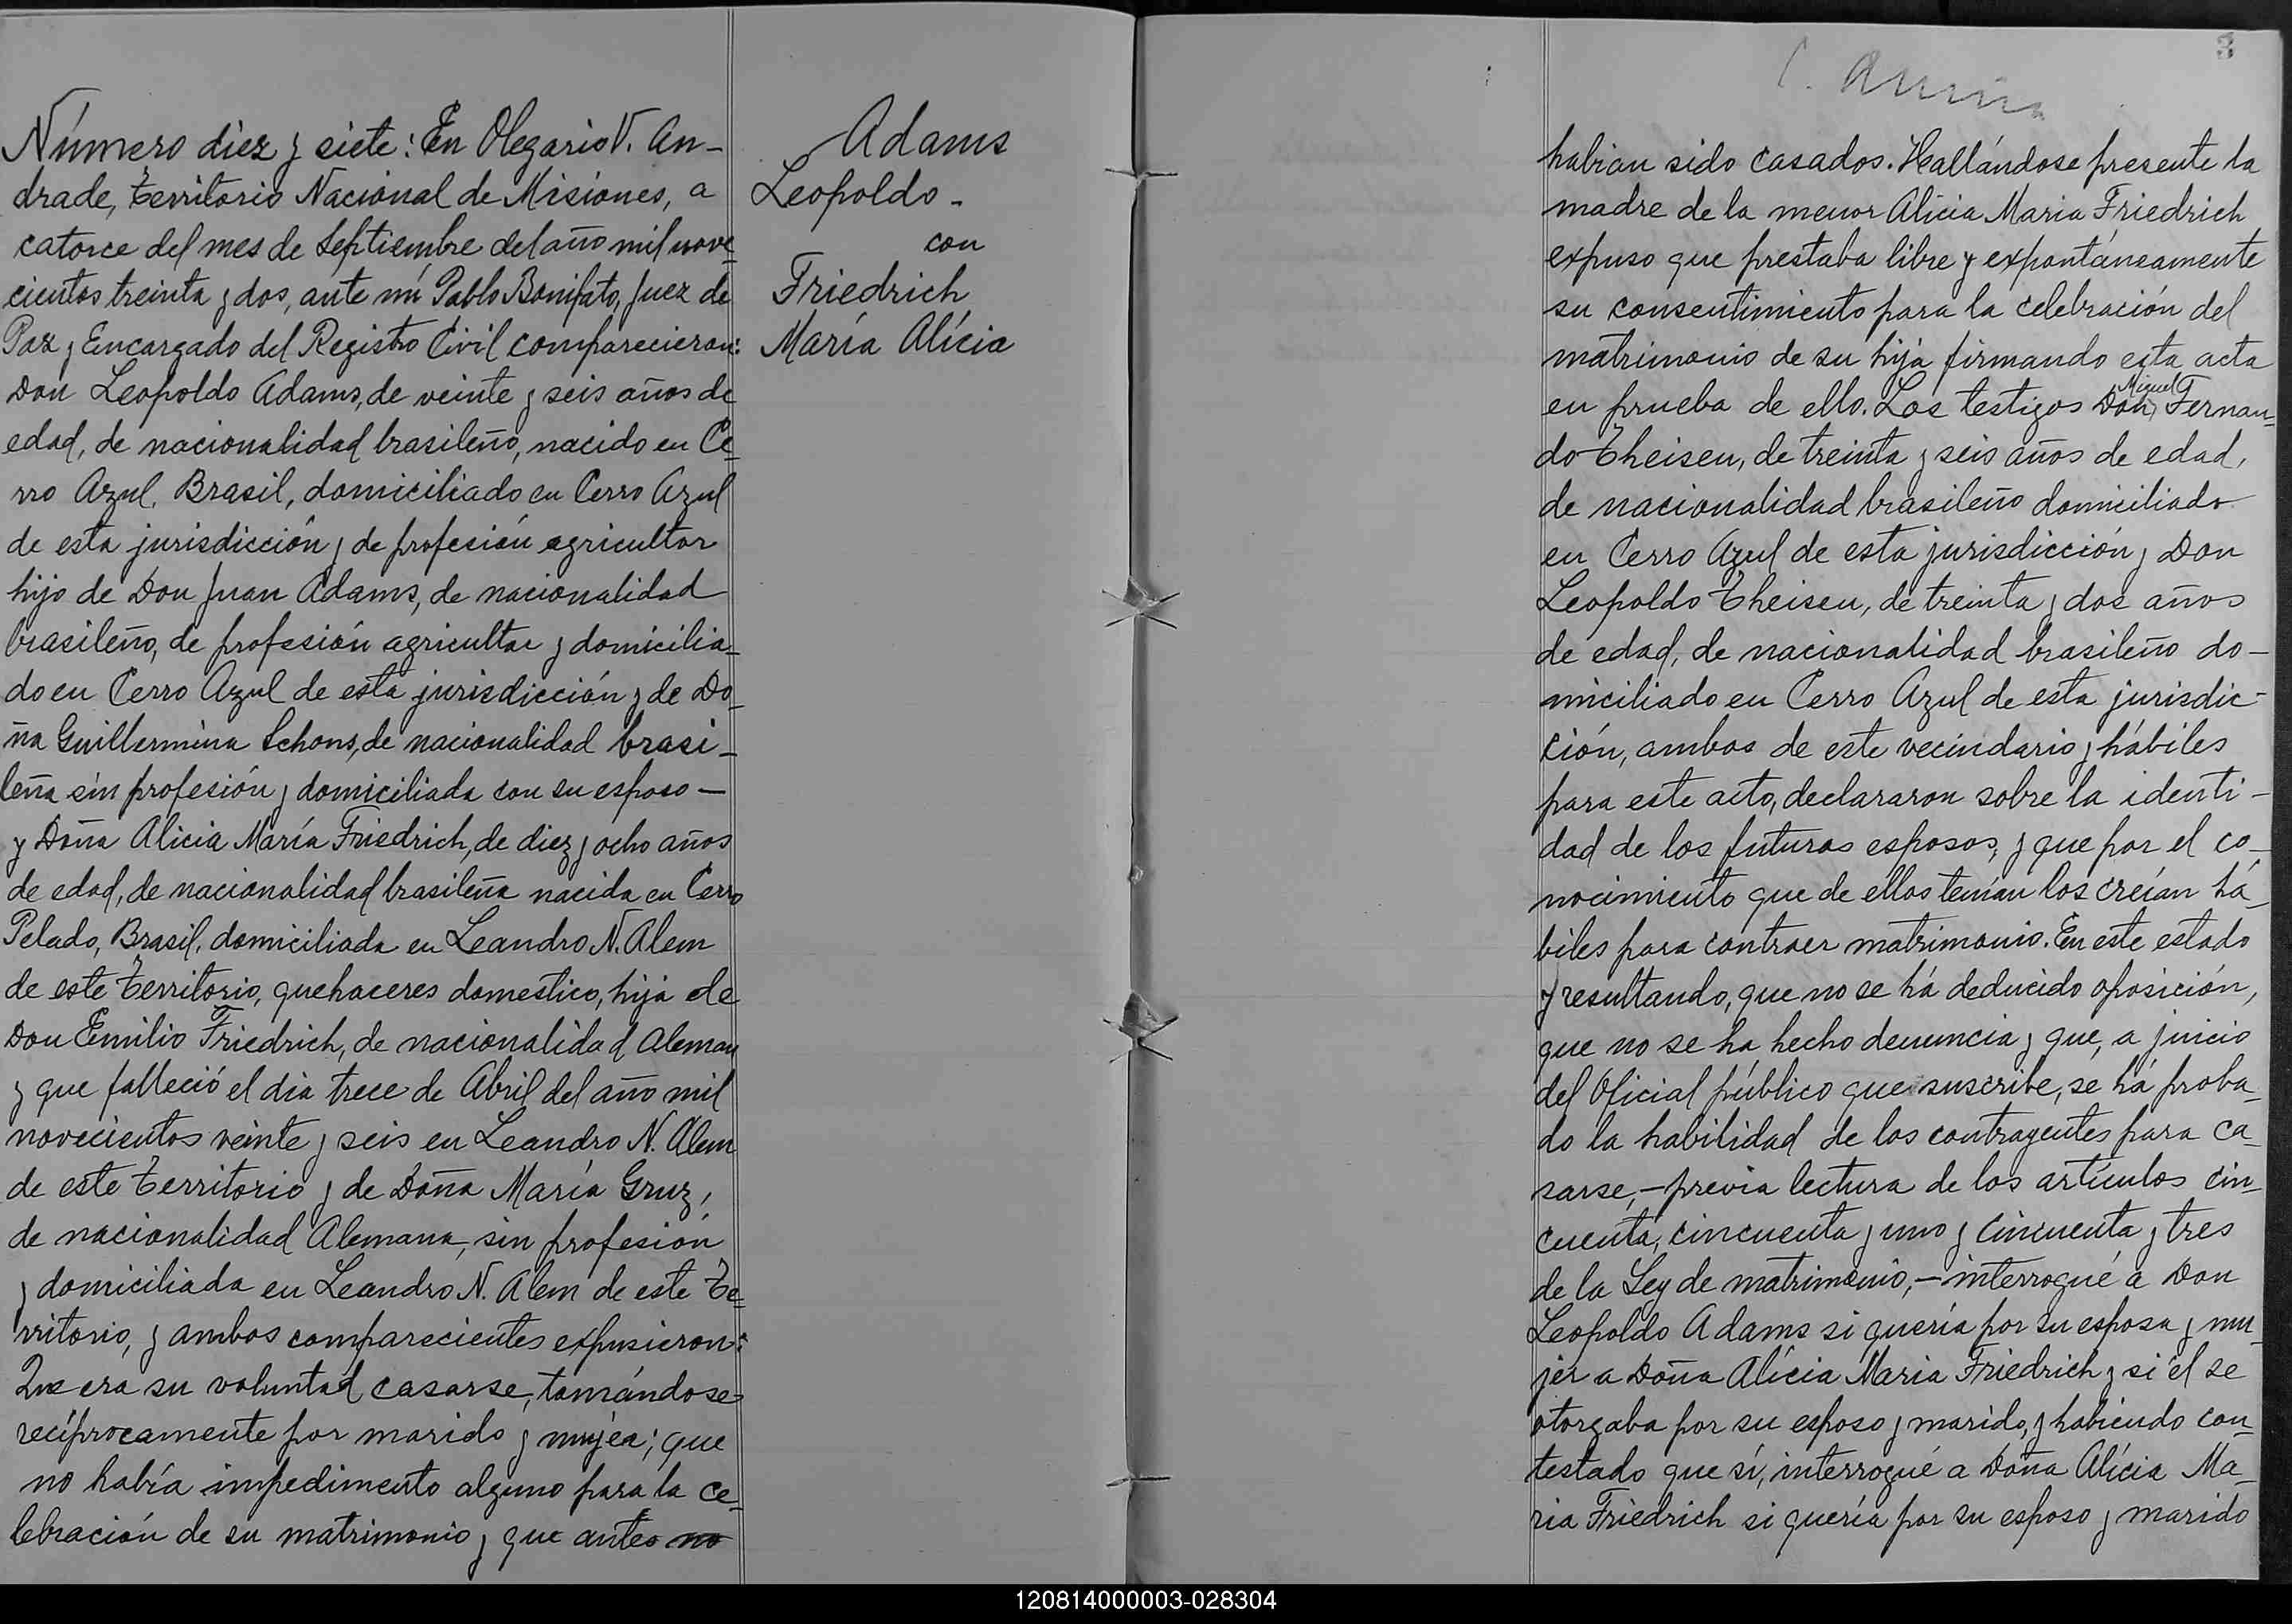 Número diez y siete: En Olegario V. An-
drade, Territorio Nacional de Misiones, a
catorce del mes de Septiembre del año mil nove-
cientos treinta y dos, ante mí Pablo Bonifato, Juez de
Paz y Encargado del Registro Civil comparecieron:
Don Leopoldo Adams, de veinte y seis años de
edad, de nacionalidad brasileño, nacido en Ce-
rro Azul, Brasil, domiciliado en Cerro Azul
de esta jurisdicción y de profesión agricultor
hijo de Don Juan Adams, de nacionalidad
brasileño, de profesión agricultor y domicilia-
do en Cerro Azul de esta jurisdicción y de Do-
ña Guillermina Schons, de nacionalidad brasi-
leña sin profesión y domiciliada con su esposo —
y Doña Alicia María Friedrich, de diez y ocho años
de edad, de nacionalidad brasileña nacida en Cerro
Pelado, Brasil, domiciliada en Leandro N. Alem
de este Territorio, quehaceres domestico, hija de
Don Emilio Friedrich, de nacionalidad Aleman
y que falleció el dia trece de Abril del año mil
novecientos veinte y seis en Leandro N. Alem
de este Territorio y de Doña María Gruz,
de nacionalidad Alemana, sin profesión
y domiciliada en Leandro N. Alem de este Te-
rritorio, y ambos comparecientes expusieron:
Que era su voluntad casarse, tomándose
recíprocamente por marido y mujer; que
no había impedimento alguno para la ce-
lebración de su matrimonio y que antes no
Adams
Leopoldo -
con
Friedrich
María Alícia
3
habian sido casados. Hallándose presente la
madre de la menor Alicia Maria Friedrich
expuso que prestaba libre y expontáneamente
su consentimiento para la celebración del
matrimonio de su hija firmando esta acta
en prueba de ello. Los testigos Don Miguel Fernan-
do Theisen, de treinta y seis años de edad,
de nacionalidad brasileño domiciliado
en Cerro Azul de esta jurisdicción y Don
Leopoldo Theisen, de treinta y dos años
de edad, de nacionalidad brasileño do-
miciliado en Cerro Azul de esta jurisdic-
ción, ambos de este vecindario y hábiles
para este acto, declararon sobre la identi-
dad de los futuros esposos; y que por el co-
nocimiento que de ellos tenían los creían há-
biles para contraer matrimonio. En este estado
y resultando, que no se há deducido oposición,
que no se ha hecho denuncia y que, a juicio
del Oficial público que suscribe, se há proba-
do la habilidad de los contrayentes para ca-
sarse,— previa lectura de los artículos cin-
cuenta, cincuenta y uno y cincuenta y tres
de la Ley de matrimonio,— interrogué a Don
Leopoldo Adams si quería por su esposa y mu-
jer a Doña Alícia Maria Friedrich y si él se
otorgaba por su esposo y marido, y habiendo con-
testado que sí, interrogué a Doña Alícia Ma-
ria Friedrich si quería por su esposo y marido
120814000003-028304